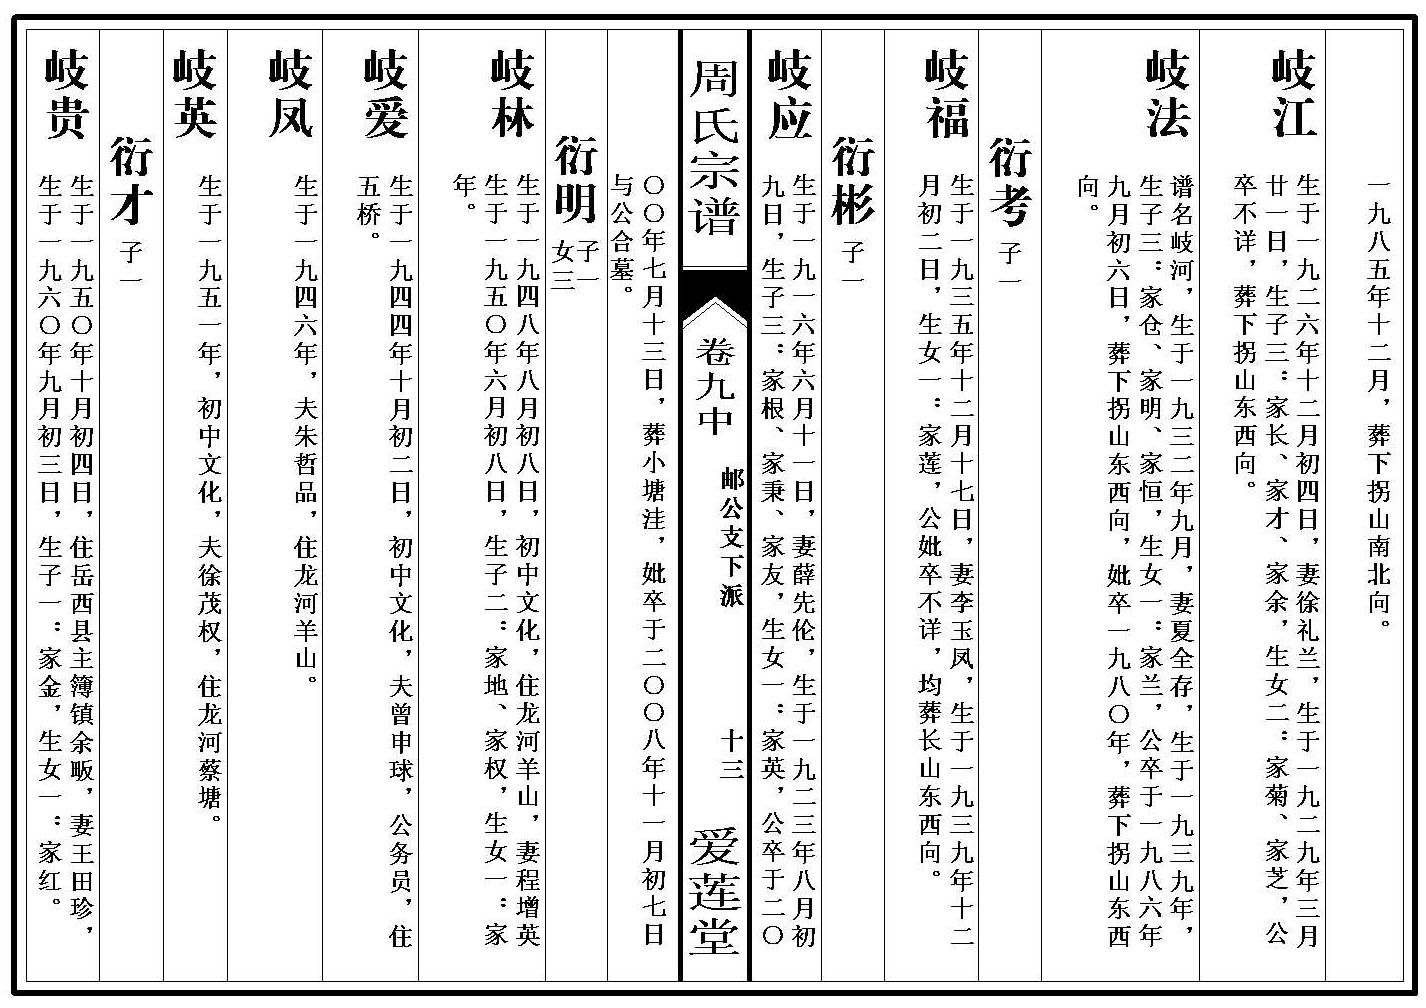 一九八五年十二月，葬下拐山南北向。
岐江
生于一九二六年十二月初四日，妻徐礼兰，生于一九二九年三月
廿一日，生子三：家长、家才、家余，生女二：家菊、家芝，公
卒不详，葬下拐山东西向。
岐法
谱名岐河，生于一九三二年九月，妻夏全存，生于一九三九年，
生子三：家仓、家明、家恒，生女一：家兰，公卒于一九八六年
九月初六日，葬下拐山东西向，妣卒一九八〇年，葬下拐山东西
向。
衍考
子一
岐福
生于一九三五年十二月十七日，妻李玉凤，生于一九三九年十二
月初二日，生女一：家莲，公妣卒不详，均葬长山东西向。
衍彬
子一
岐应
生于一九一六年六月十一日，妻薛先伦，生于一九二三年八月初
九日，生子三：家根、家秉、家友，生女一：家英，公卒于二〇
周氏宗谱
卷九中
邮公支下派
十三
爱莲堂
〇〇年七月十三日，葬小塘洼，妣卒于二〇〇八年十一月初七日
与公合墓。
衍明
子一
女三
岐林
生于一九四八年八月初八日，初中文化，住龙河羊山，妻程增英
生于一九五〇年六月初八日，生子二：家地、家权，生女一：家
年。
岐爱
生于一九四四年十月初二日，初中文化，夫曾申球，公务员，住
五桥。
岐凤
生于一九四六年，夫朱哲品，住龙河羊山。
岐英
生于一九五一年，初中文化，夫徐茂权，住龙河蔡塘。
衍才
子一
岐贵
生于一九五〇年十月初四日，住岳西县主簿镇余畈，妻王田珍，
生于一九六〇年九月初三日，生子一：家金，生女一：家红。